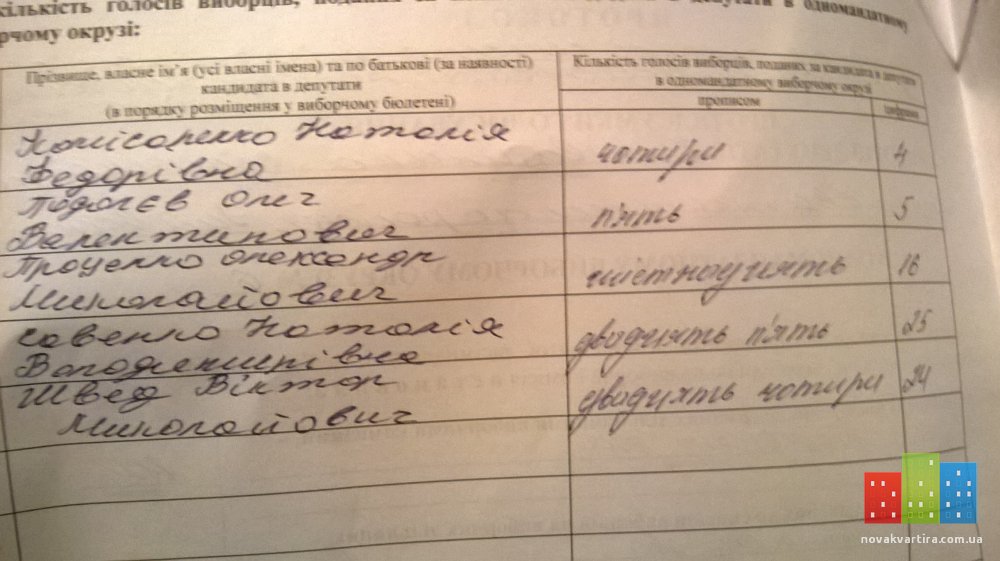 кількість голосів виборців, в депутати в одномандатному
рчому окрузі:
Прізвище, власне ім'я (усі власні імена) та по батькові (за наявності)
кандидата в депутати
(в порядку розміщення у виборчому бюлетені)
Кількість голосів виборців, поданих за кандидата в депутати
в одномандатному виборчому окрузі
прописом
цифрами
Комісаренко Наталія
Федорівна
чотири
4
Олег
Валентинович
п'ять
5
Проценко Олександр
Миколайович
шістнадцять
16
Савенко Наталія
Володимирівна
двадцять п'ять
25
Швед Віктор
Миколайович
двадцять чотири
24
novakvartira.com.ua